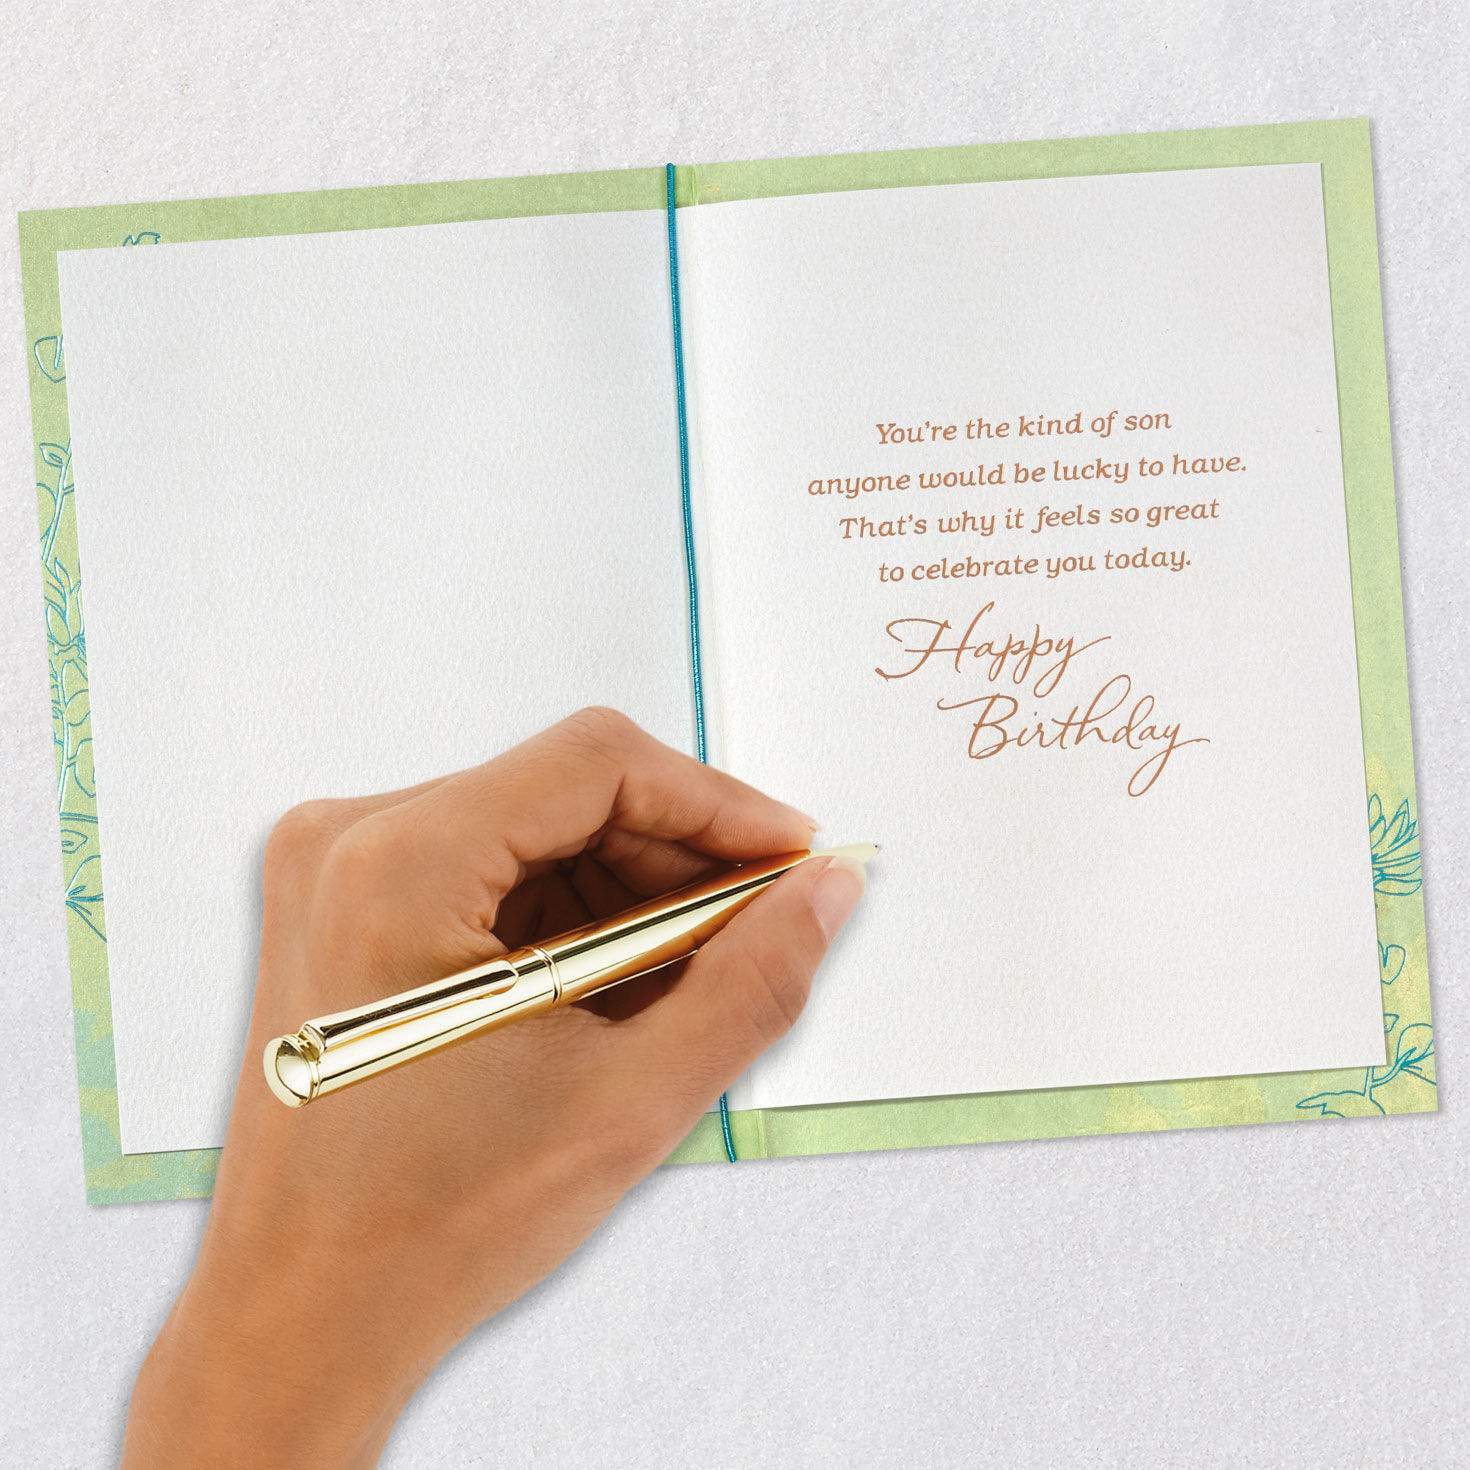 You're the kind of son
anyone would be lucky to have.
That's why it feels so great
to celebrate you today.
Happy
Birthday